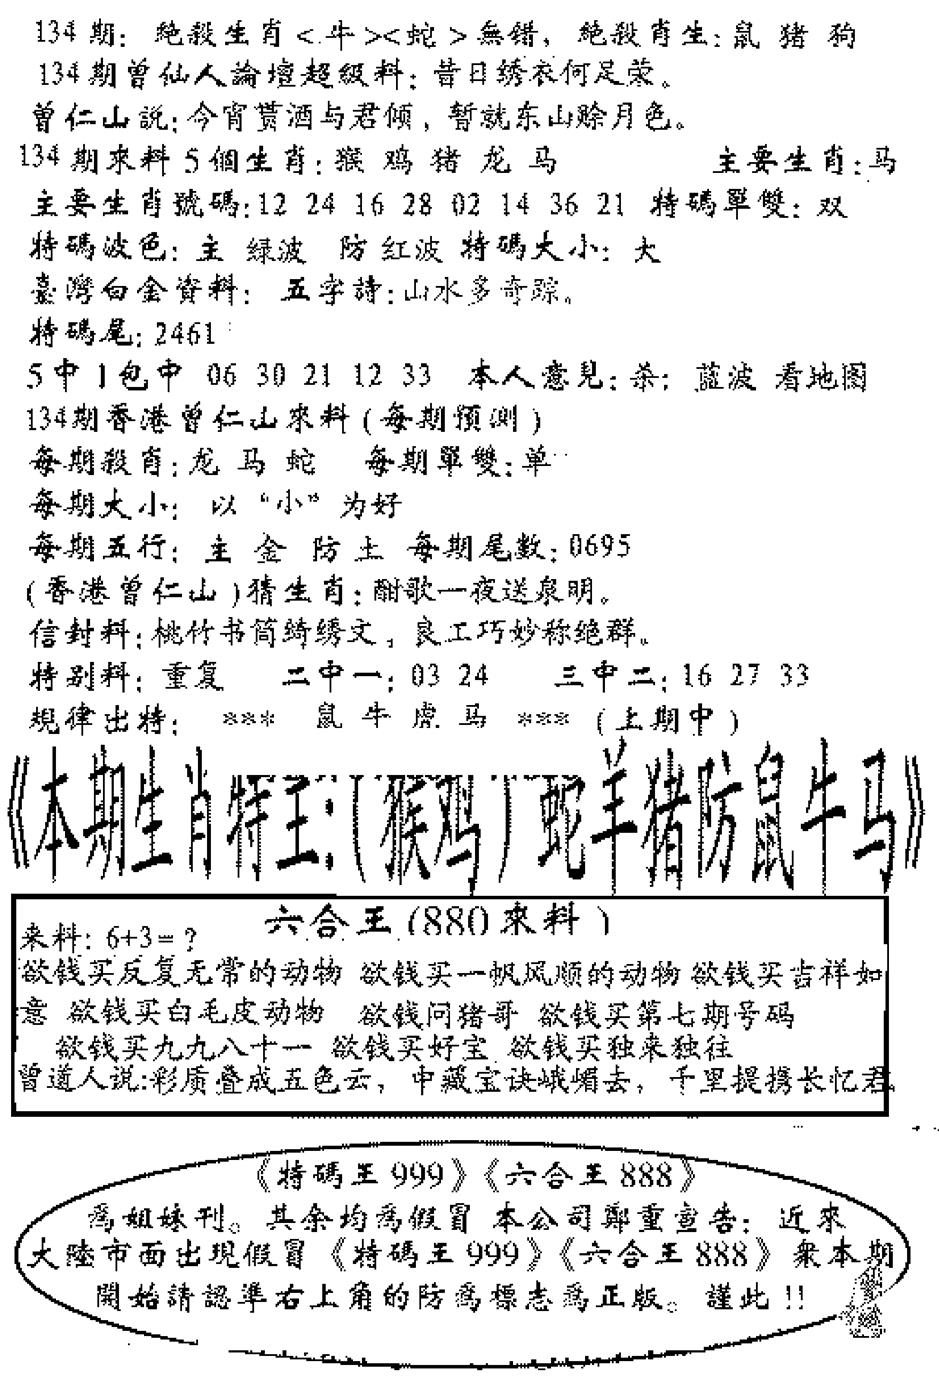 134期：絶殺生肖<牛><蛇>無错，絶殺肖生：鼠 猪 狗
134期曾仙人論壇超級料：昔日绣衣何足荣。
曾仁山説：今宵贳酒与君倾，暂就东山赊月色。
134期來料5個生肖：猴 鸡 猪 龙 马 主要生肖：马
主要生肖號碼：12 24 16 28 02 14 36 21 特碼單雙：双
特碼波色：主 绿波 防 红波 特碼大小：大
臺灣白金資料：五字詩：山水多奇踪。
特碼尾：2461
5中1包中 06 30 21 12 33 本人意見：恭：蓝波 看地图
134期香港曾仁山來料(每期預測)
每期殺肖：龙 马 蛇 每期單雙：单
每期大小：以“小”为好
每期五行：主 金 防 土 每期尾數：0695
(香港曾仁山)猜生肖：酣歌一夜送泉明。
信封料：桃竹书筒绮绣文，良工巧妙称绝群。
特别料：重复 二中一：03 24 三中二：16 27 33
規律出特：*** 鼠 牛 虎 马 *** (上期中)
《本期生肖特王：(猴鸡)蛇羊猪防鼠牛马》
六合王(880來料)
来料：6+3=？
欲钱买反复无常的动物 欲钱买一帆风顺的动物 欲钱买吉祥如
意 欲钱买白毛皮动物 欲钱问猪哥 欲钱买第七期号码
欲钱买九九八十一 欲钱买好宝 欲钱买独来独往
曾道人说：彩质叠成五色云，中藏宝诀峨嵋去，千里提携长忆君
《特碼王999》《六合王888》
為姐妹刊。其余均為假冒 本公司鄭重宣告：近來
大陸市面出現假冒《特碼王999》《六合王888》衆本期
開始請認準右上角的防為標志為正版。謹此!!